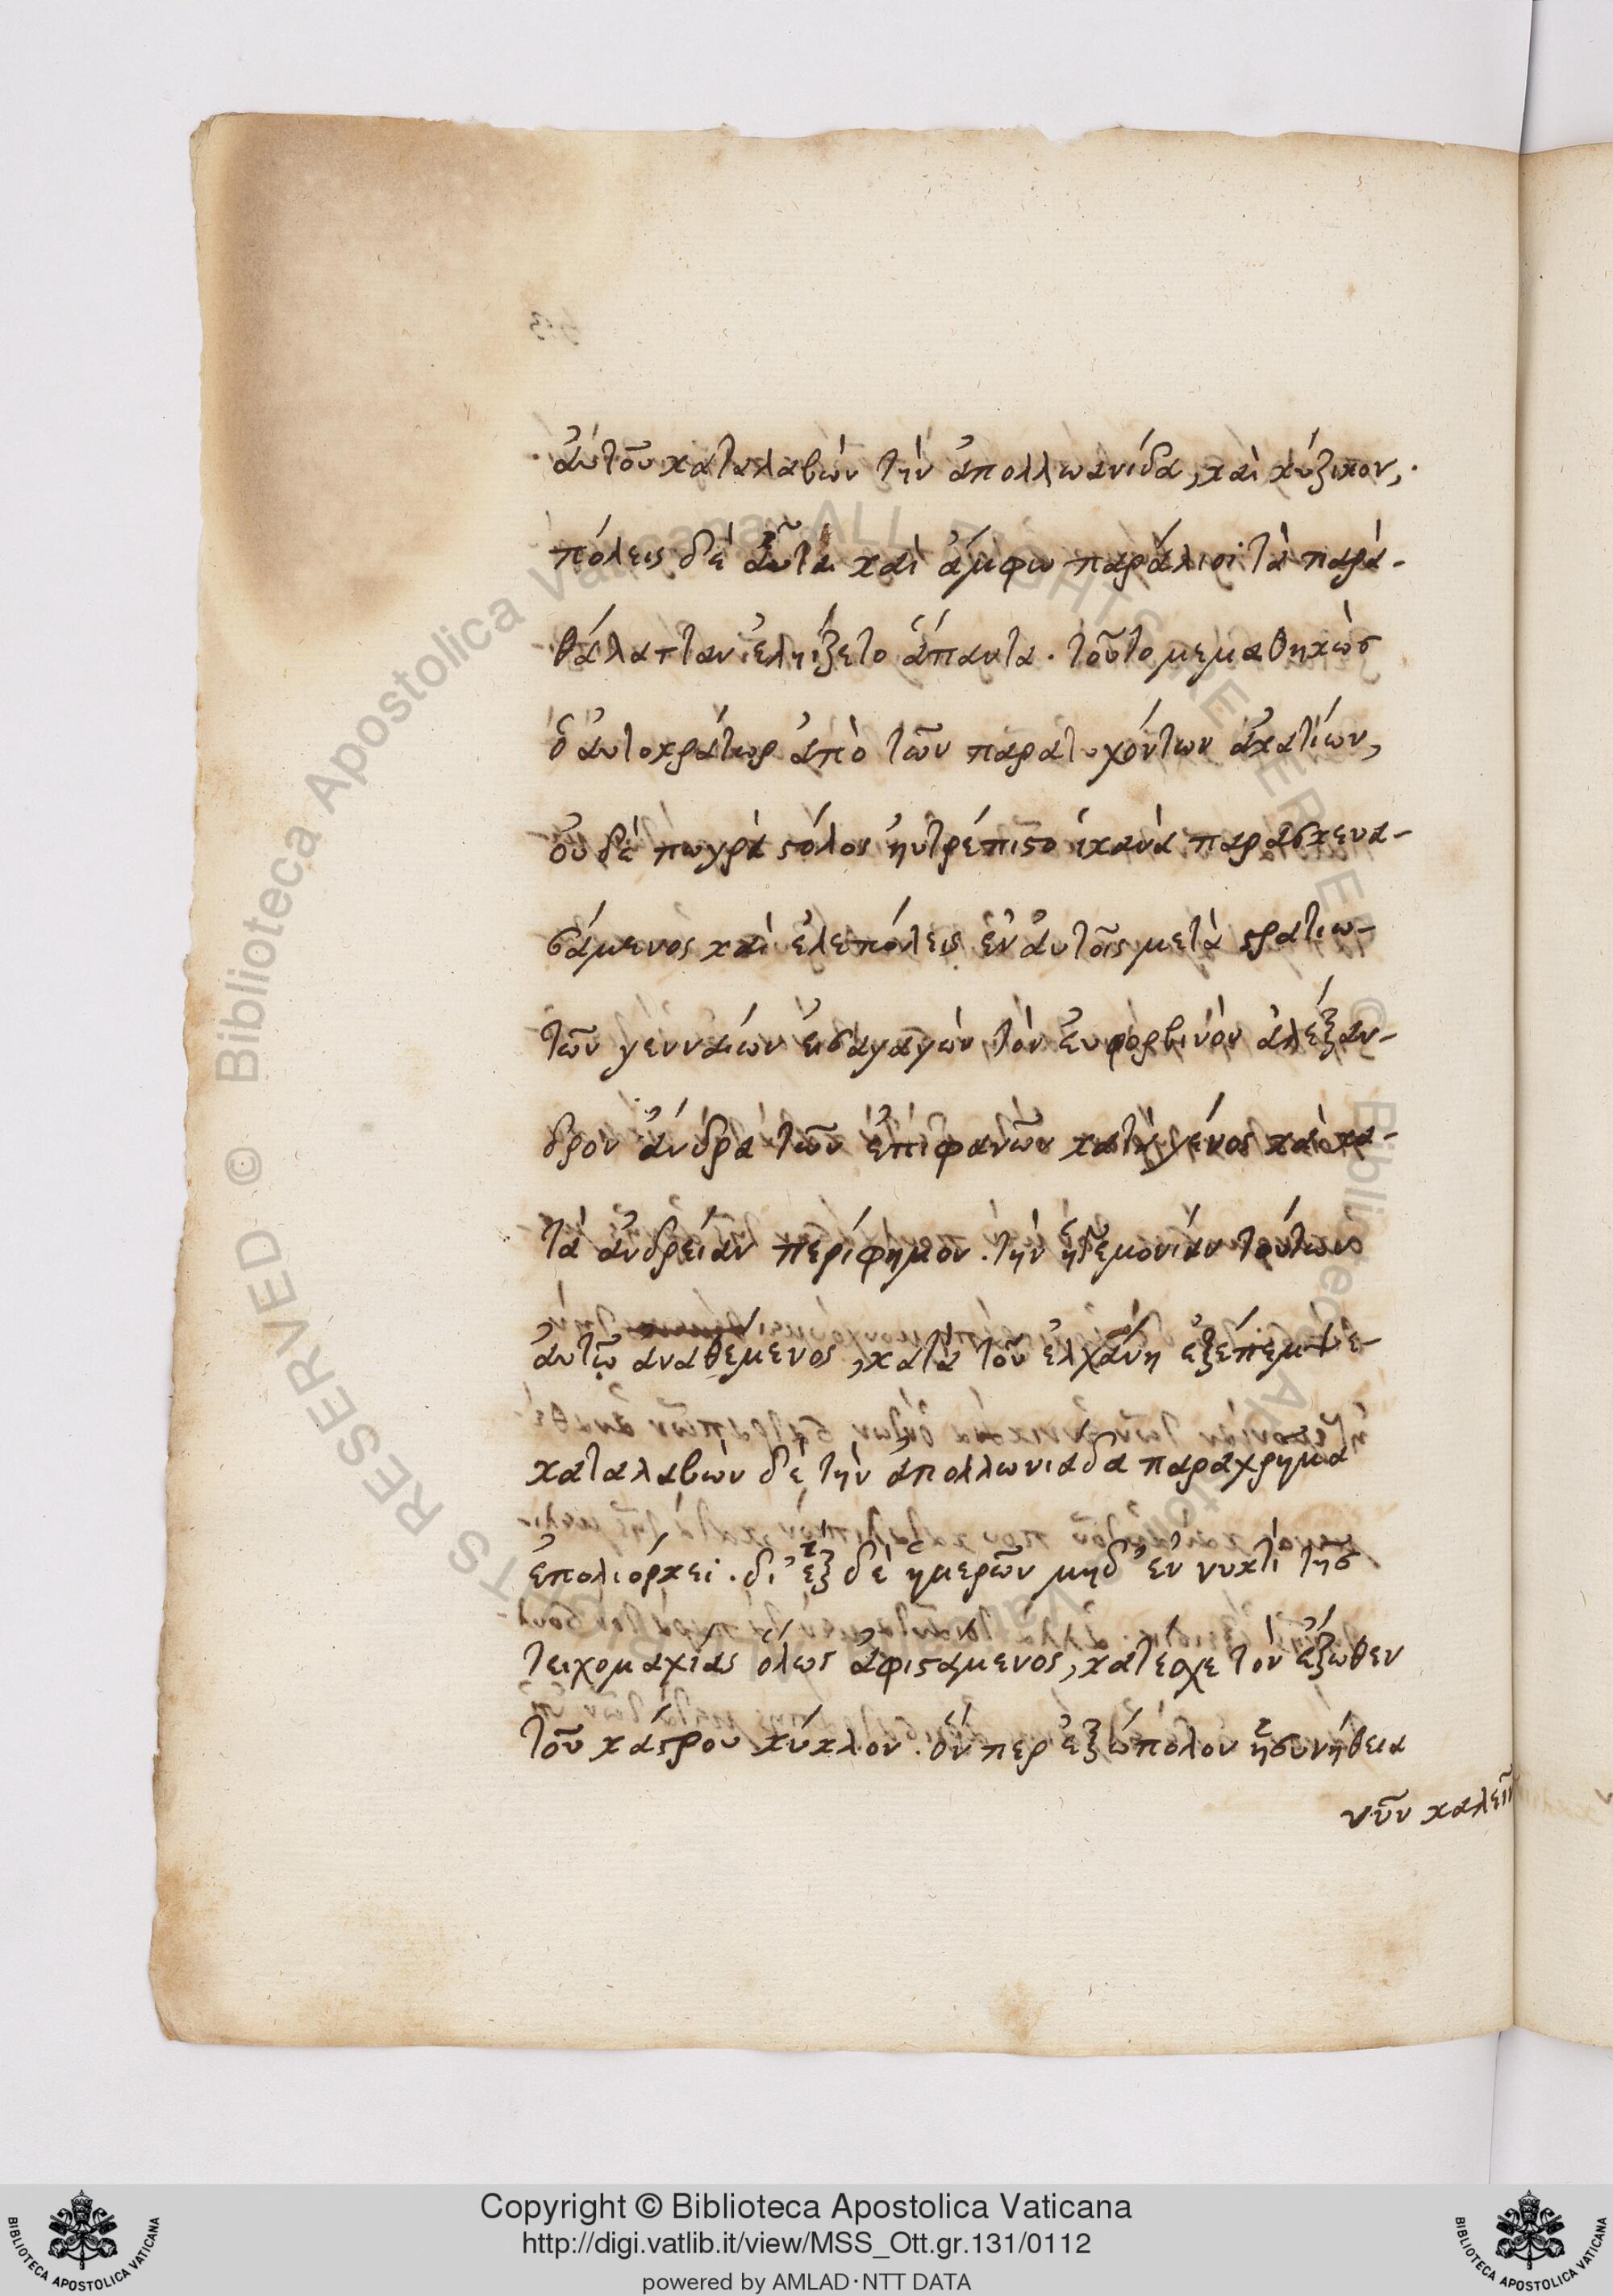 ἀυτοῦ καταλαβὼν τὴν ἀπολλωανίδα, καὶ κύζικον,
πόλεις δὲ ἀῦται καὶ ἄμφω παράλιοι τὰ παρὰ-
θάλατταν ἐληΐζετο ἅπαντα. τοῦτο μεμαθηκὼς
ὁ ἀυτοκράτωρ ἀπὸ τῶν παρατυχόντων ἀκατίων,
ὀυδέπω γρὰ στόλος ηὐτρέπιστο ἱκανὰ παρασκευα-
σάμενος καὶ ἑλεπόλεις ἐν ἀυτοῖς μετὰ στρατιω-
τῶν γενναίων ἐισαγαγὼν, τὸν ἐυφορβινὸν ἀλέξαν-
δρον ἄνδρα τῶν ἐπιφανῶν κατὰ γένος καὶ κα-
τὰ ἀνδρείαν περίφημον. τὴν ἡγεμονίαν τούτων
ἀυτῷ αναθέμενος, κατὰ τοῦ ἐλχάνη ἐξέπεμψε-
καταλαβὼν δὲ τὴν ἀπολλωνιάδα παραχρῆμα
ἐπολιόρκει. δι' ἓξ δὲ ἡμερῶν μηδ' ἐν νυκτὶ τῆς
τειχομαχίας ὅλως ἀφιστάμενος, κατέσχε τὸν ἔξωθεν
τοῦ κάστρου κύκλον. ὅν περ ἐξώπολον ἡ συνήθεια
νῦν καλεῖν
Copyright © Biblioteca Apostolica Vaticana
http://digi.vatlib.it/view/MSS_Ott.gr.131/0112
powered by AMLAD·NTT DATA
BIBLIOTECA APOSTOLICA VATICANA
BIBLIOTECA APOSTOLICA VATICANA